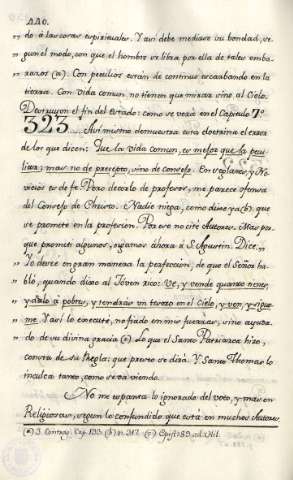 220.
do á las cosas espirituales. Y asi debe medirse su bondad, se-
gun el modo, con que el hombre se libra por ella de tales emba-
razos (a). Con peculios están de continuo escarbando en la
tierra. Con vida comun no tienen que mirar sino al Cielo.
Destruyen el fin del Estado: como se verá en el Capitulo 7º
323. Asi mismo demuestra esta doctrina el error
de los que dicen: Que la vida comun, es mejor que la pecu-
liar; mas no de precepto, sino de consejo. En seglares, y No-
vicios es de fe. Pero decirlo de profesos, me parece ofensa
del Consejo de Christo. Nadie niega, como dixe ya (b), que
se promete en la profesion. Por eso no cito Autores. Mas por-
que prometi algunos, oigamos ahora á S. Agustin. Dice.
" Yo deseo en gran manera la perfeccion, de que el Señor ha-
" bló, quando dixo al Joven rico: Ve, y vende quanto tienes,
" y dalo á pobres, y tendrás un tesoro en el Cielo, y ven, y sigue-
" me. Y asi lo executé, no fiado en mis fuerzas, sino ayuda-
" do de su divina gracia (c). Lo que el Santo Patriarca hizo,
consta de su Regla: que presto se dirá. Y Santo Thomas lo
inculca tanto, como se va viendo.
No me espanta lo ignorado del voto, y mas en
Religiosas, segun lo confundido que está en muchos Autores
(a) 3. Contrag. Cap. 133. (b) n. 217. (c) Epist. 89. ad Hil.